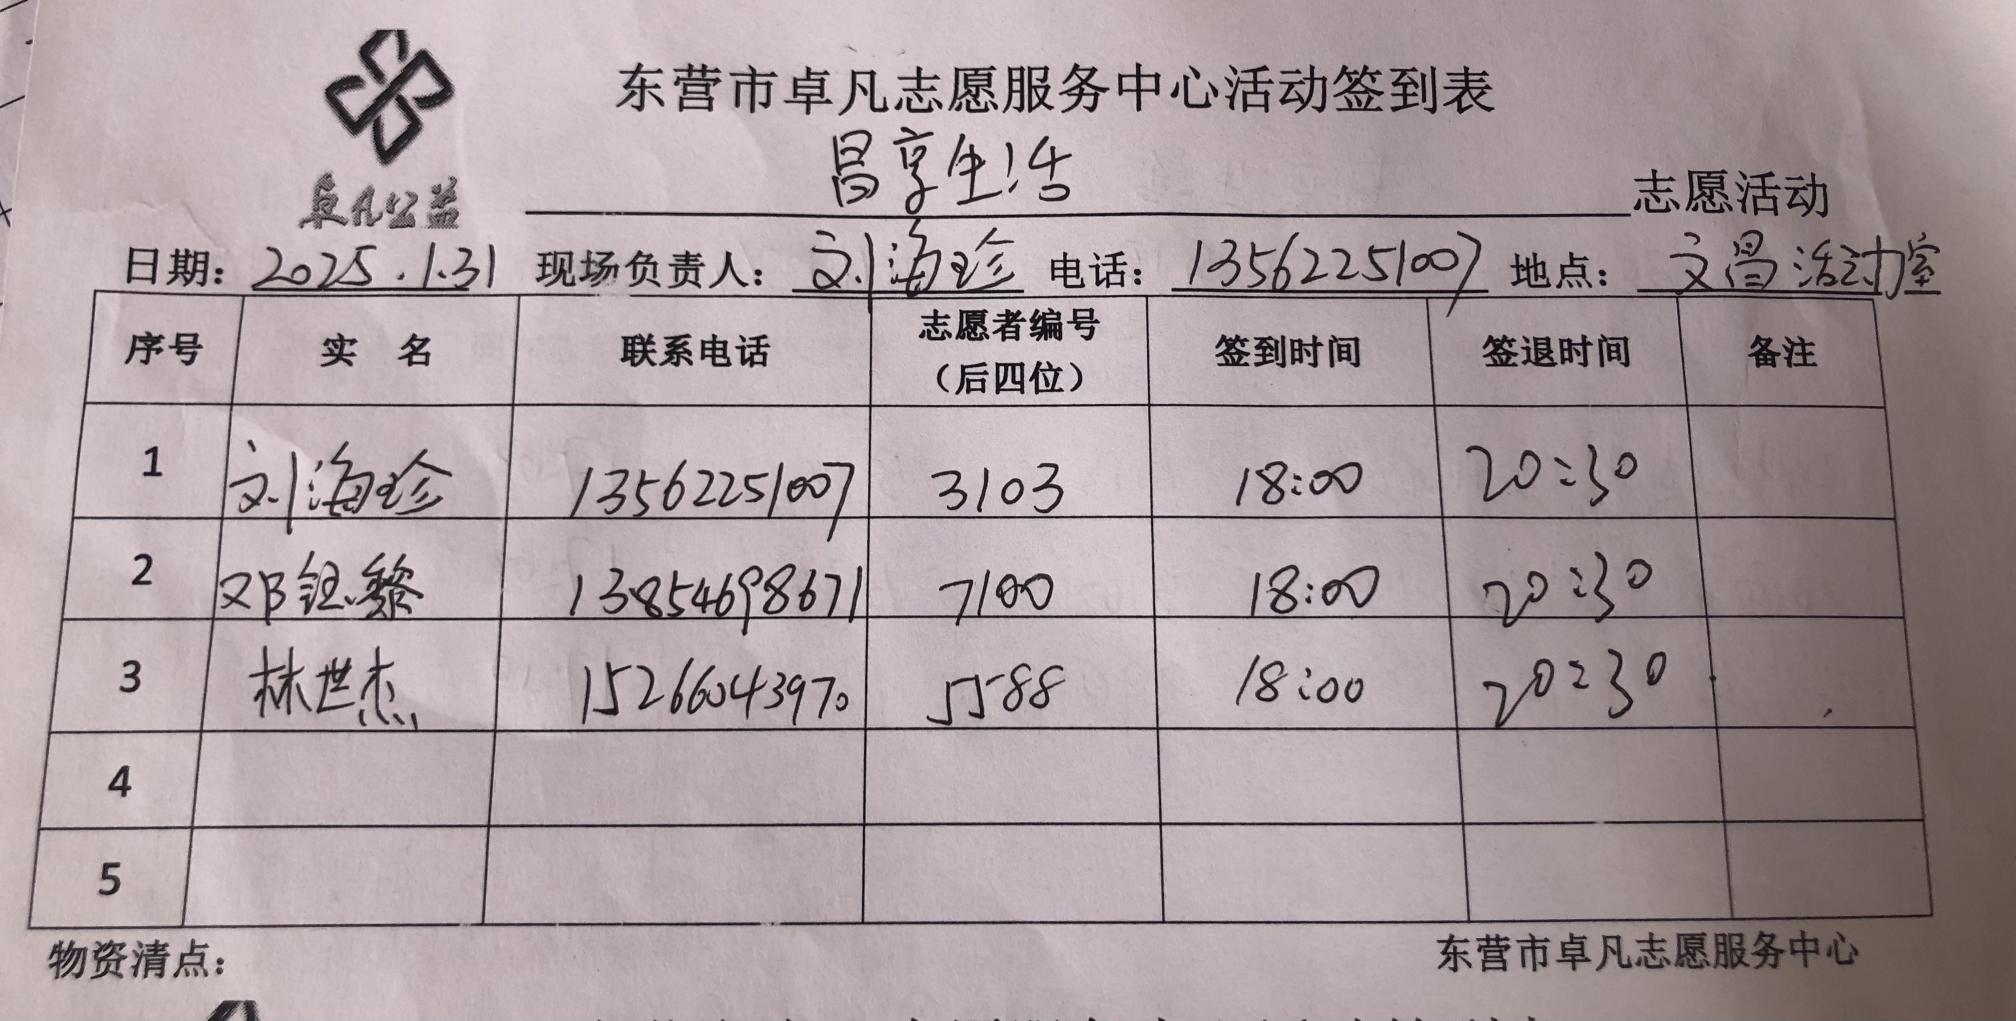 东营市卓凡志愿服务中心活动签到表
昌享生活 志愿活动
卓凡公益
日期: 2025.1.31 现场负责人: 刘海珍 电话: 13562251007 地点: 文昌活动室
序号 实 名 联系电话 志愿者编号(后四位) 签到时间 签退时间 备注
1 刘海珍 13562251007 3103 18:00 20:30
2 邓钰黎 13854698671 7100 18:00 20:30
3 林世杰 15266043970 5588 18:00 20:30
4
5
物资清点: 东营市卓凡志愿服务中心